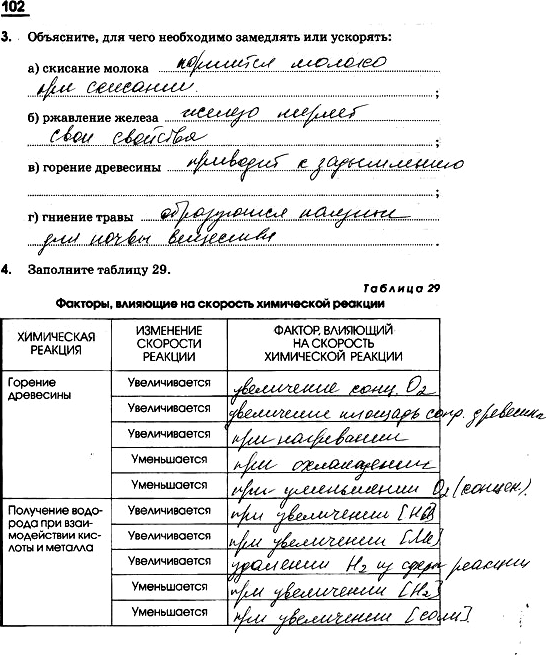 102
3. Объясните, для чего необходимо замедлять или ускорять:
а) скисание молока портится молоко
при скисании ;
б) ржавление железа железо теряет
свои свойства ;
в) горение древесины приводит к задымлению
;
г) гниение травы образующиеся полезные
для почвы вещества .
4. Заполните таблицу 29.
Таблица 29
Факторы, влияющие на скорость химической реакции
ХИМИЧЕСКАЯ РЕАКЦИЯ ИЗМЕНЕНИЕ СКОРОСТИ РЕАКЦИИ ФАКТОР, ВЛИЯЮЩИЙ НА СКОРОСТЬ ХИМИЧЕСКОЙ РЕАКЦИИ
Горение древесины Увеличивается увеличение конц. O2
Увеличивается увеличение площадь сопр. древесины
Увеличивается при нагревании
Уменьшается при охлаждении
Уменьшается при уменьшении O2 (концен).
Получение водорода при взаимодействии кислоты и металла Увеличивается при увеличении
Увеличивается при увеличении [Me]
Увеличивается удалении H2 из сферы реакции
Уменьшается при увеличении [H2]
Уменьшается при увеличении [соли]